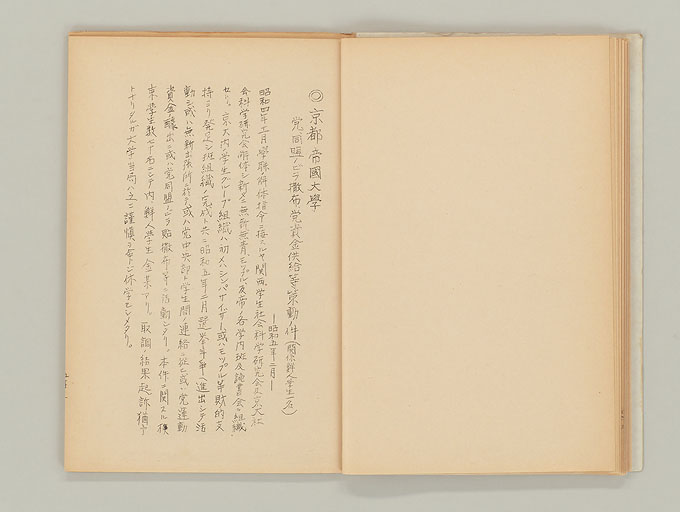 ◎京都帝國大學
党同盟ノビラ撒布党資金供給等策動ノ件(関係鮮人学生一名)
―昭和五年二月―
昭和四年十一月學聯解体指令ニ接スルヤ関西学生社会科学研究会及京大社
会科学研究会ヲ解体シ新タニ無新無青、モップル及帝ノ各学内班及読書会ヲ組織
セリ。京大内学生グループ組織ハ初メハシンパサイザー或ハモップル等財的支
持ヨリ発足シ班組織ノ完成ト共ニ昭和五年二月選挙斗争ヘ進出シテ活
動シ或ハ無新出張所ノ 或ハ党中央部ト学生間ノ連絡ニ 或ハ党運動
資金醵出ニ或ハ党同盟ノビラ貼撒布等ニ活動シタリ 本件ニ関スル検
束学生数七十 名ニシテ内 鮮人學生 金某アリ。取調ノ結果起訴猶予
トナリタルガ大学当局ハ之ニ謹慎ヲ命ジ休学セシメタリ。